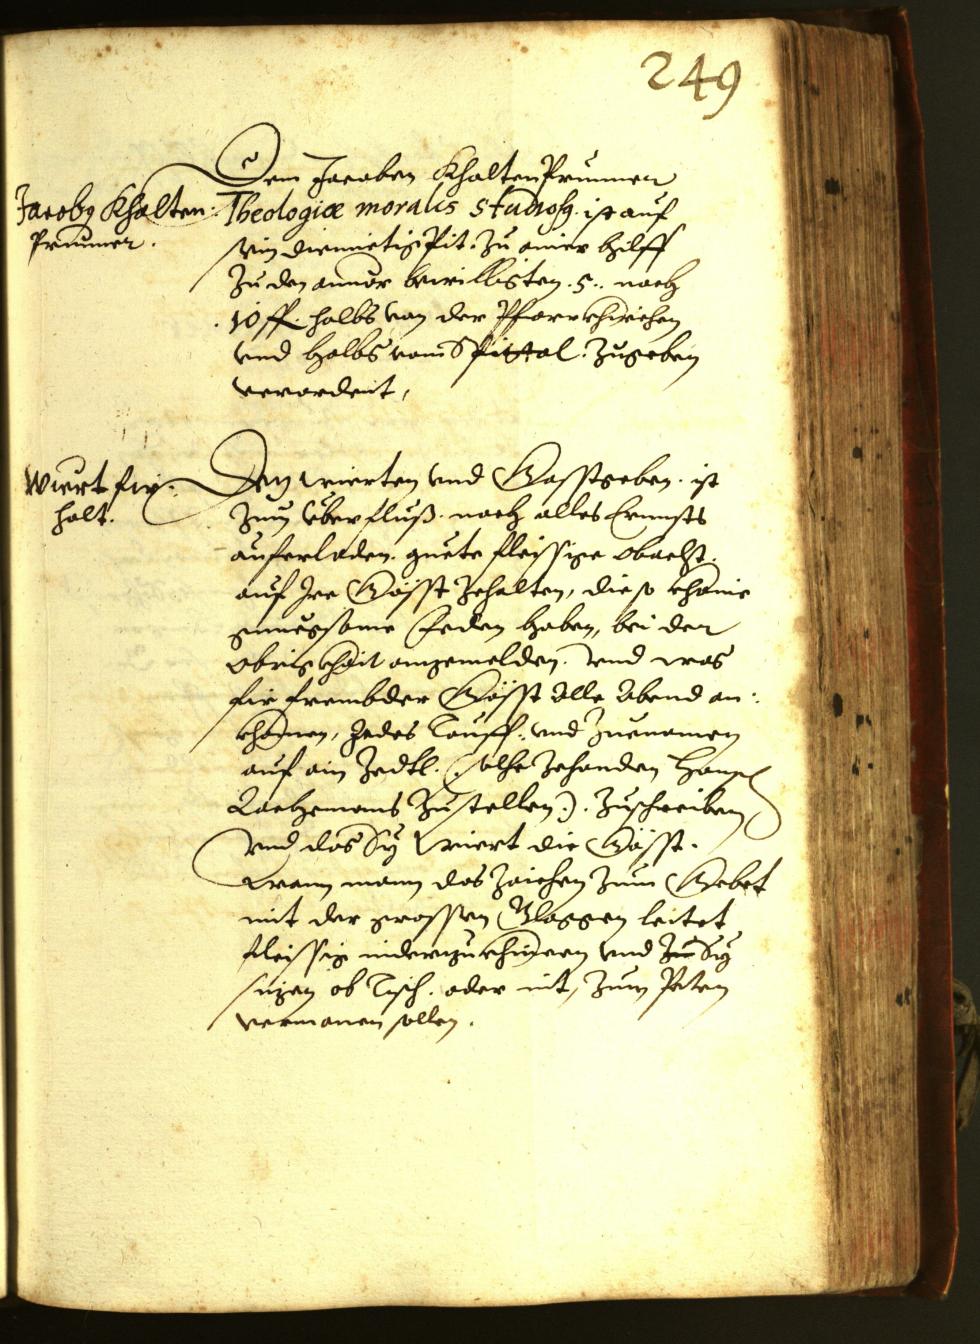 249
Jacobg Khalten:
Prunner.
Dem Jacoben Khaltenprunner
Theologiæ moralis studiosg. ist auf
sein diemietig Pit. zu ainer hilff
zu den annor bewilligten .5. noch
.10 ff. halbs von der Pfarrkhirchen
vnd halbs vom Spittal. zugeben
verordent,
Wiert fir-
halt.
Den Wierten vnd Gasstgeben. ist
zum Überfluß. noch alles Ernnsts
auferladen. guete fleissige obacht.
auf Ire Gässt zehalten, die so khaine
genuegsame Feden haben, bei der
Obrigkhait anzemelden. vnd was
fir frembder Gässt Alle Abend an:
khomen, Jedes Tauff: vnd Zuenamen
auf ain Zedtl. (: solhe zehanden Hannsen
zustellen:). zuschreiben
vnd das Sy Wiert die Gässt.
Wann mann das Zaichen zum Gebet
mit der grossen Gloggen leitet
fleissig niderzukhnieen vnd Sy
sizen ob Tisch. oder nit, zum Peten
vermanen sollen.